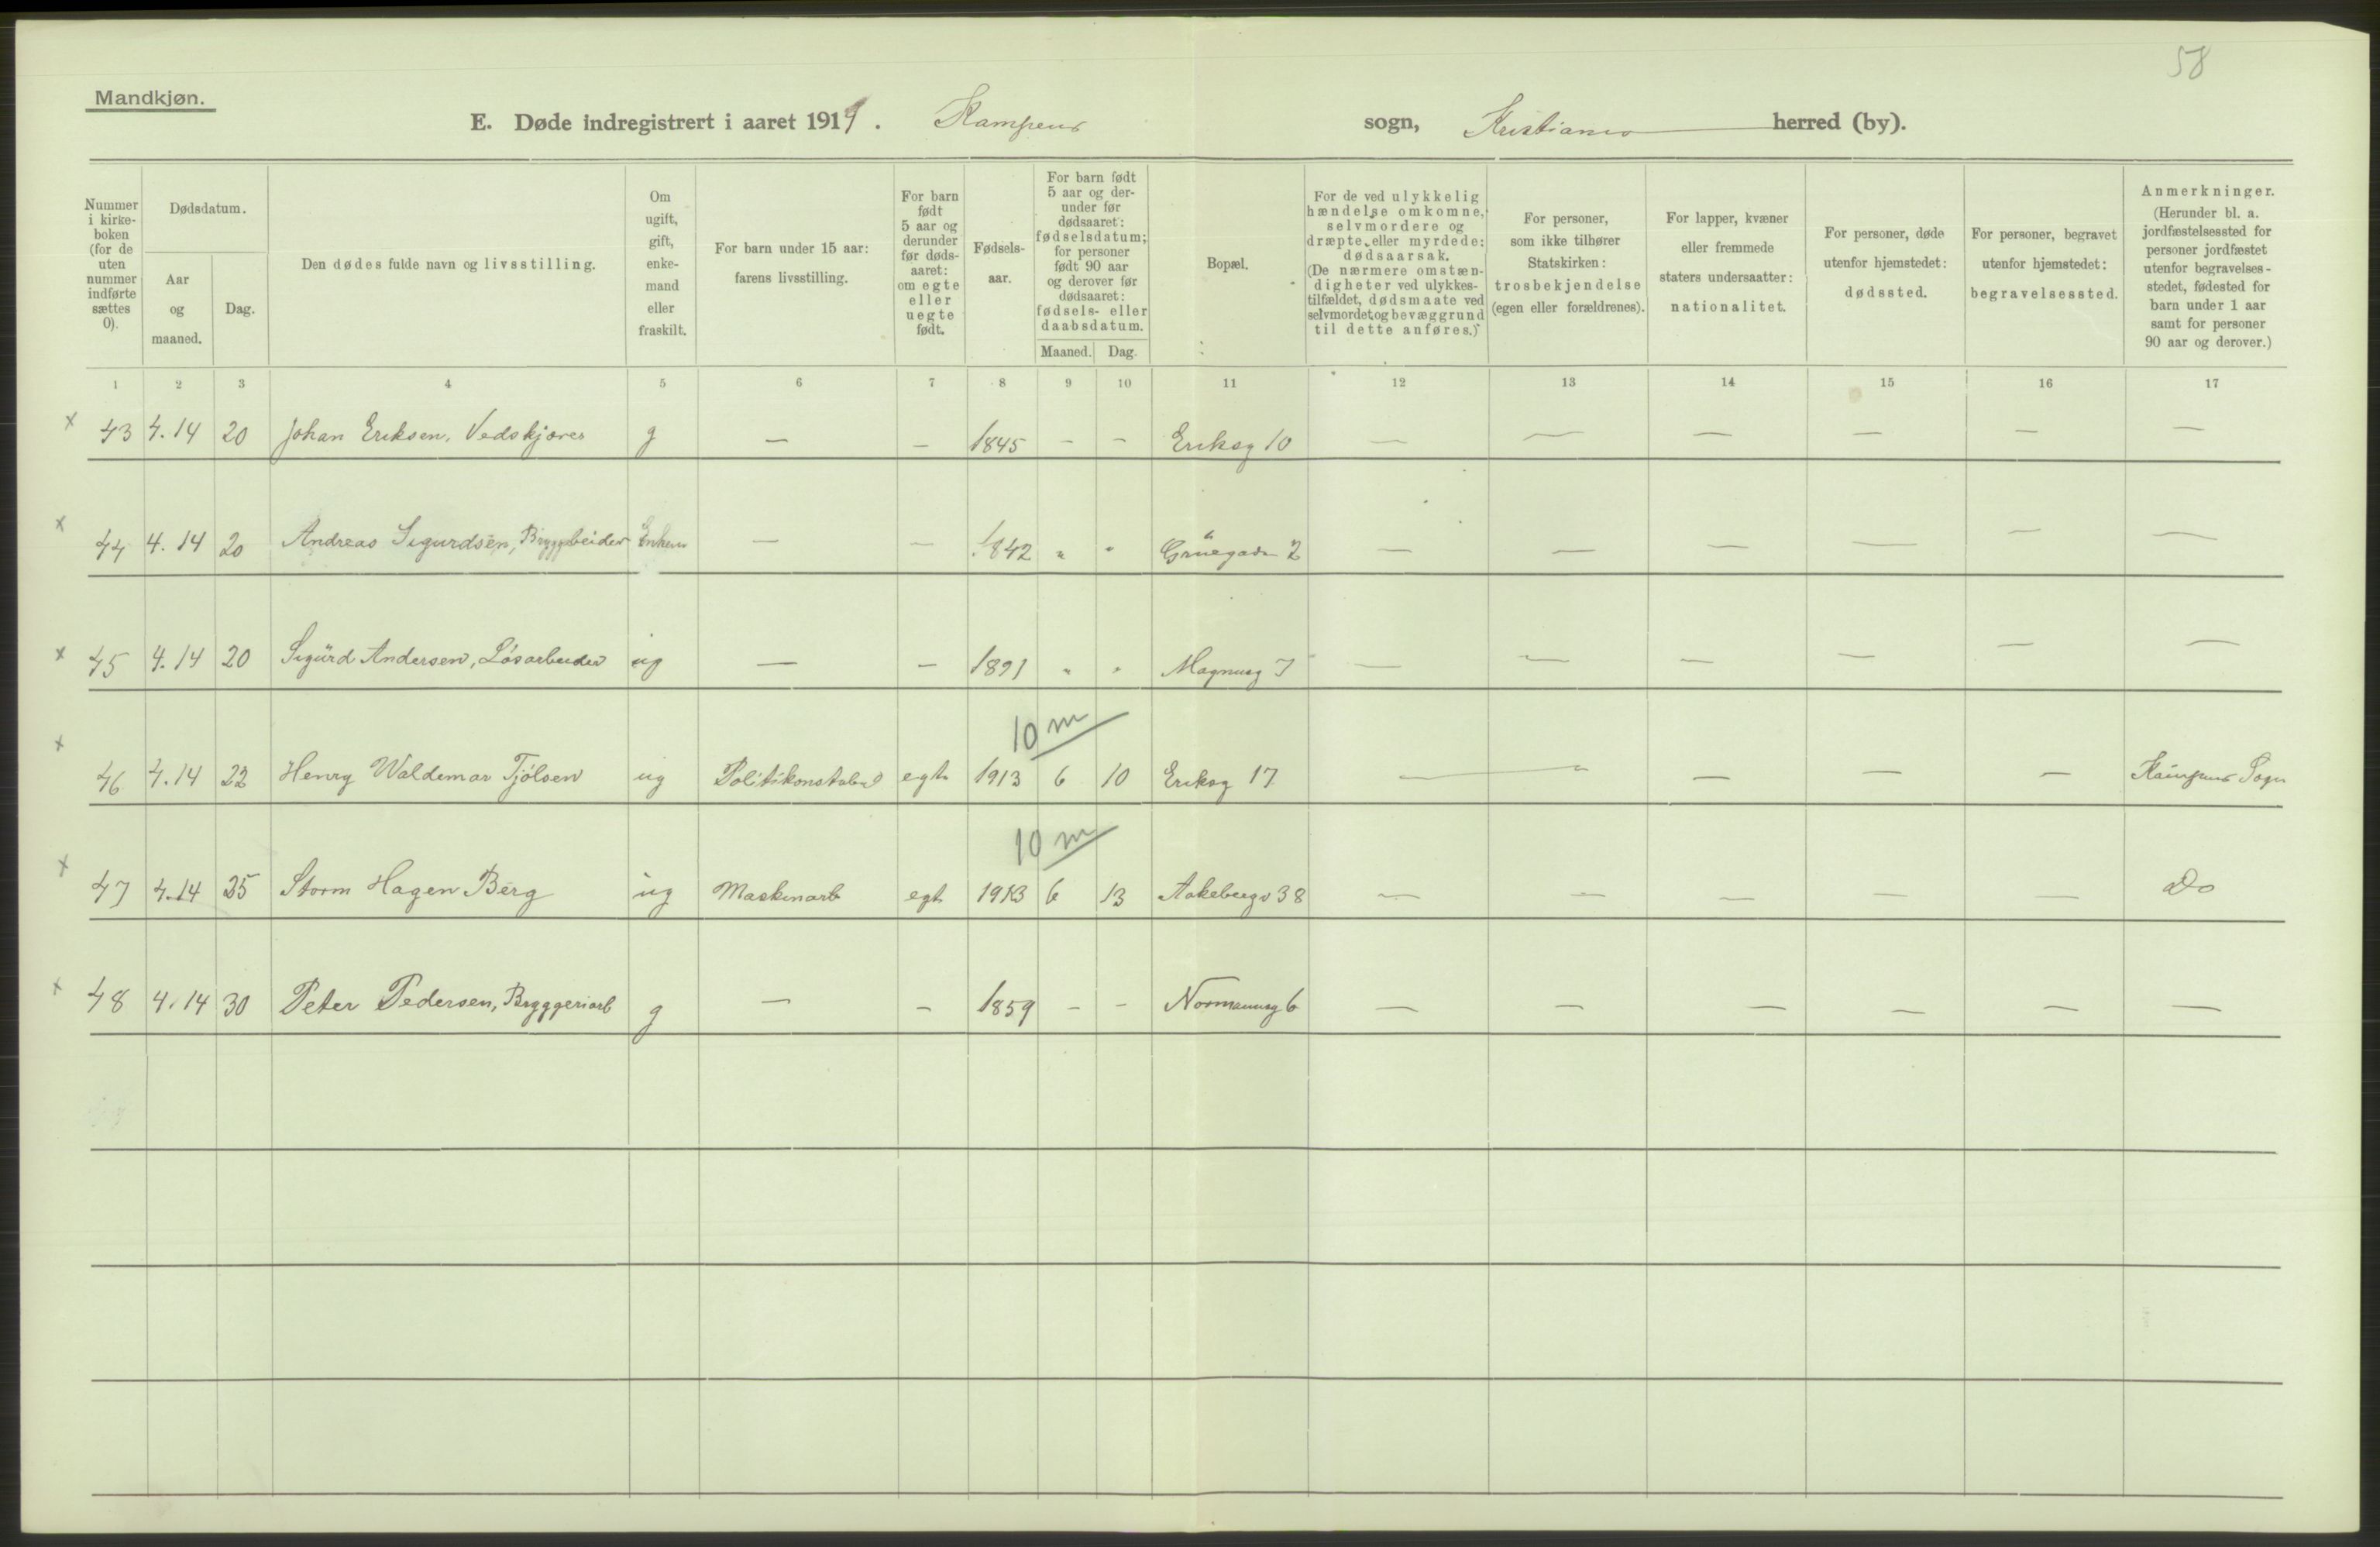 58
Mandkjøn.
E. Døde indregistrert i aaret 1914. Kampens sogn, Kristiania herred (by).
Nummer i kirkeboken (for de uten nummer indførte sættes 0).
Dødsdatum.
Aar og maaned.
Dag.
Den dødes fulde navn og livsstilling.
Om ugift, gift, enkemand eller fraskilt.
For barn under 15 aar: farens livsstilling.
For barn født 5 aar og derunder før dødsaaret: om egte eller uegte født.
Fødselsaar.
For barn født 5 aar og derunder før dødsaaret: fødselsdatum; for personer født 90 aar og derover før dødsaaret: fødsels- eller daabsdatum.
Maaned. Dag.
Bopæl.
For de ved ulykkelig hændelse omkomne, selvmordere og dræpte eller myrdede: dødsaarsak. (De nærmere omstændigheter ved ulykkestilfældet, dødsmaate ved selvmordet og bevæggrund til dette anføres.)
For personer, som ikke tilhører Statskirken: trosbekjendelse (egen eller forældrenes).
For lapper, kvæner eller fremmede staters undersaatter: nationalitet.
For personer, døde utenfor hjemstedet: dødssted.
For personer, begravet utenfor hjemstedet: begravelsessted.
Anmerkninger. (Herunder bl. a. jordfæstelsessted for personer jordfæstet utenfor begravelsesstedet, fødested for barn under 1 aar samt for personer 90 aar og derover.)
1 2 3 4 5 6 7 8 9 10 11 12 13 14 15 16 17
x 43 4.14 20 Johan Eriksen, Vedskjærer g — — 1845 - - Eriksg 10 — — — — — —
x 44 4.14 20 Andreas Sigurdsen, Bryggebeider Enkem — — 1842 " " Grüegaden 2 — — — — — —
x 45 4.14 20 Sigurd Andersen, Løsarbeider ug — — 1891 " " Magnusg 7 — — — — — —
10 m
x 46 4.14 22 Henry Waldemar Tjølsen ug Politikonstabel egte 1913 6 10 Eriksg 17 — — — — — Kampens Sogn
10 m
x 47 4.14 25 Storm Hagen Berg ug Maskinarb egte 1913 6 13 Aakebergv 38 — — — — — Do
x 48 4.14 30 Peter Pedersen, Bryggeriarb g — — 1859 - - Normannsg 6 — — — — — —